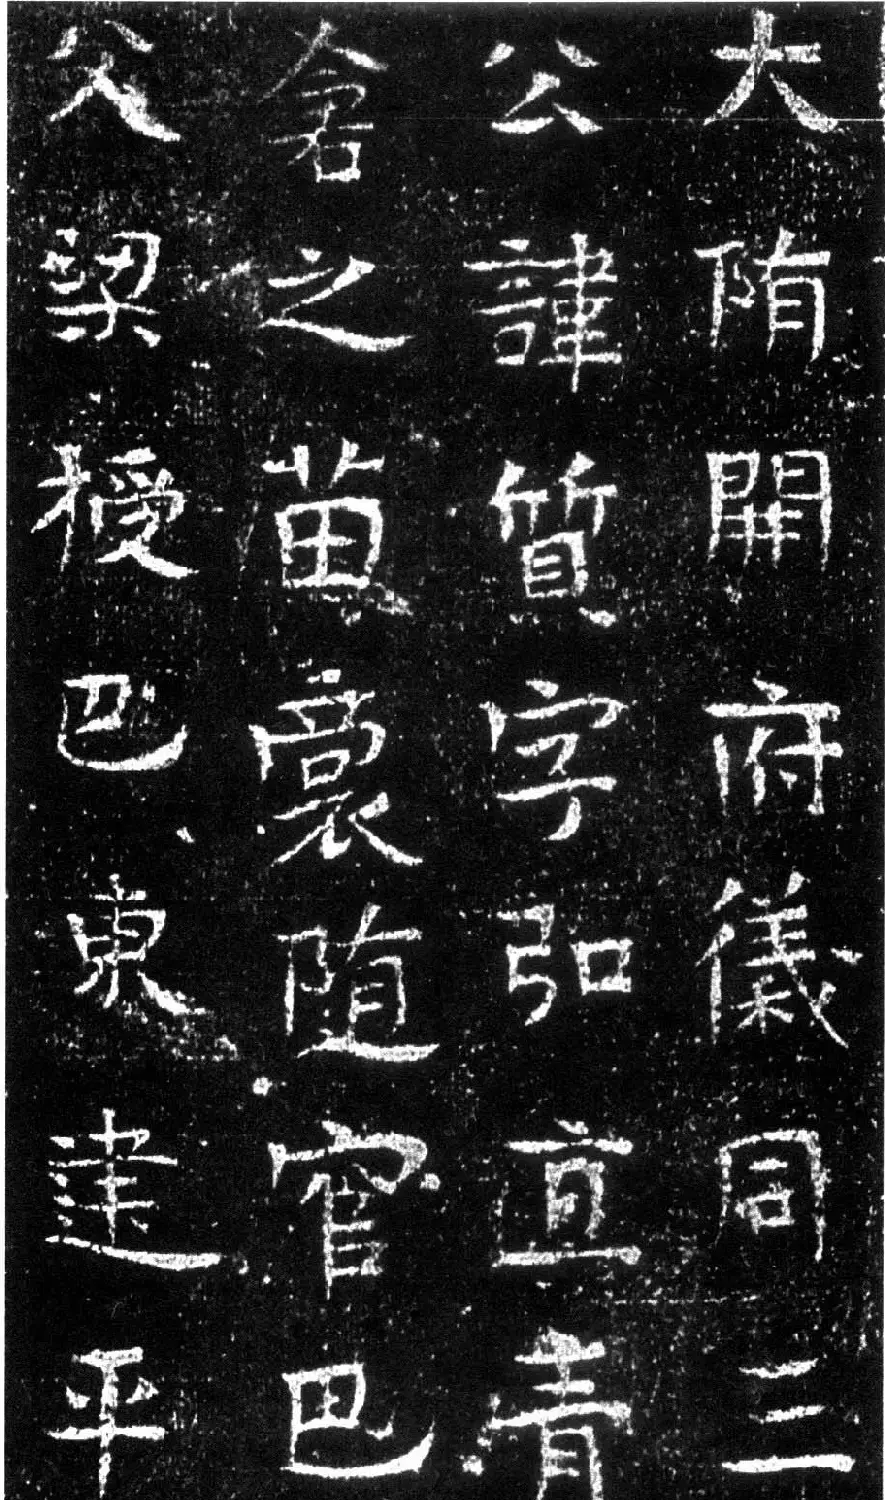 大隋開府儀同三
公諱質字弘直青
倉之苗裔随官巴
父梁授巴東建平